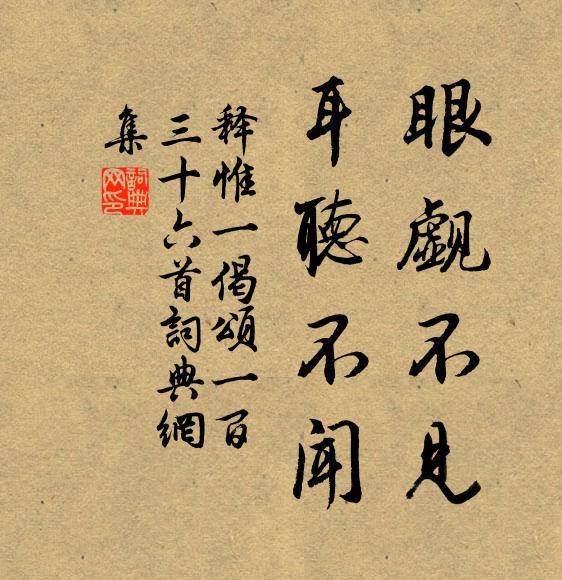 眼觑不見
耳聽不聞
释惟一偈頌一百
三十六首詞典網
集
詞典
网印